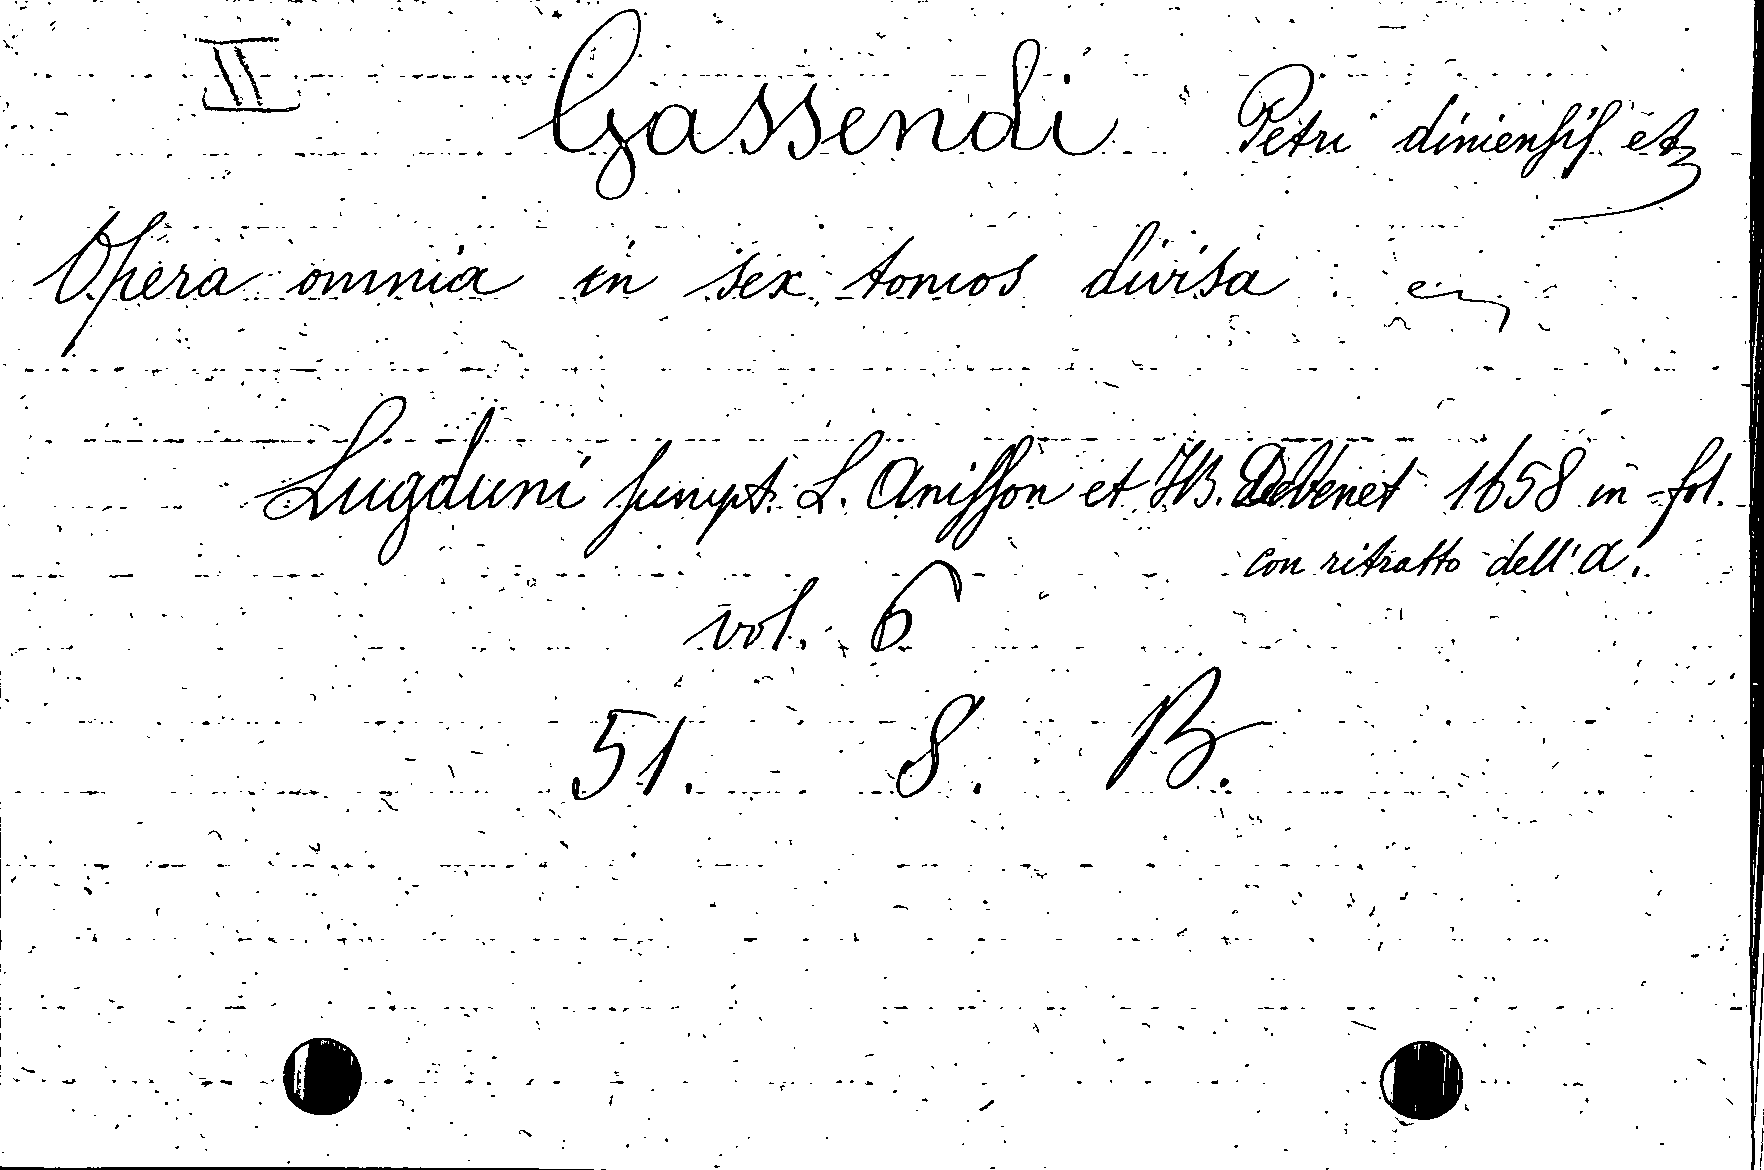 II Gassendi Petri diniensis etc
Opera omnia in sex tomos divisa
Lugduni sumpt. L. Anisson et JB. Devenet 1658 in fol.
con ritratto dell'a.
vol. 6
51. 8. B.